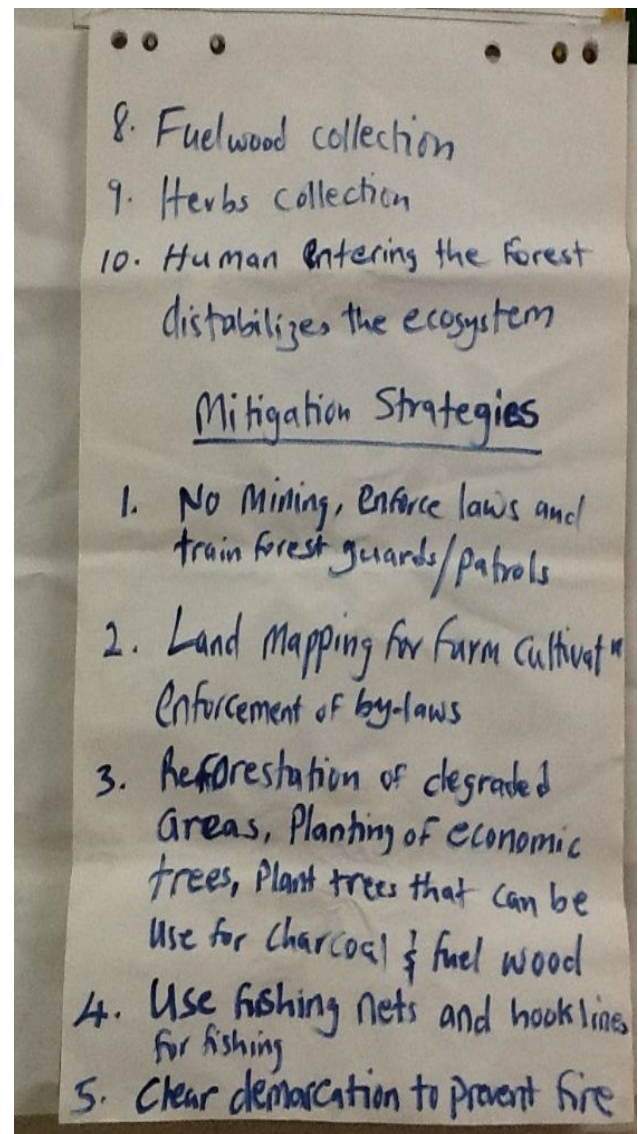 8. Fuelwood collection
9. Herbs collection
10. Human Entering the Forest
distabilizes the ecosystem
Mitigation Strategies
1. No Mining, enforce laws and
train forest guards/patrols
2. Land Mapping for farm cultivatⁿ
enforcement of by-laws
3. Reforestation of degraded
areas, Planting of economic
trees, Plant trees that can be
use for charcoal & fuel wood
4. Use fishing nets and hook lines
for fishing
5. Clear demarcation to prevent fire